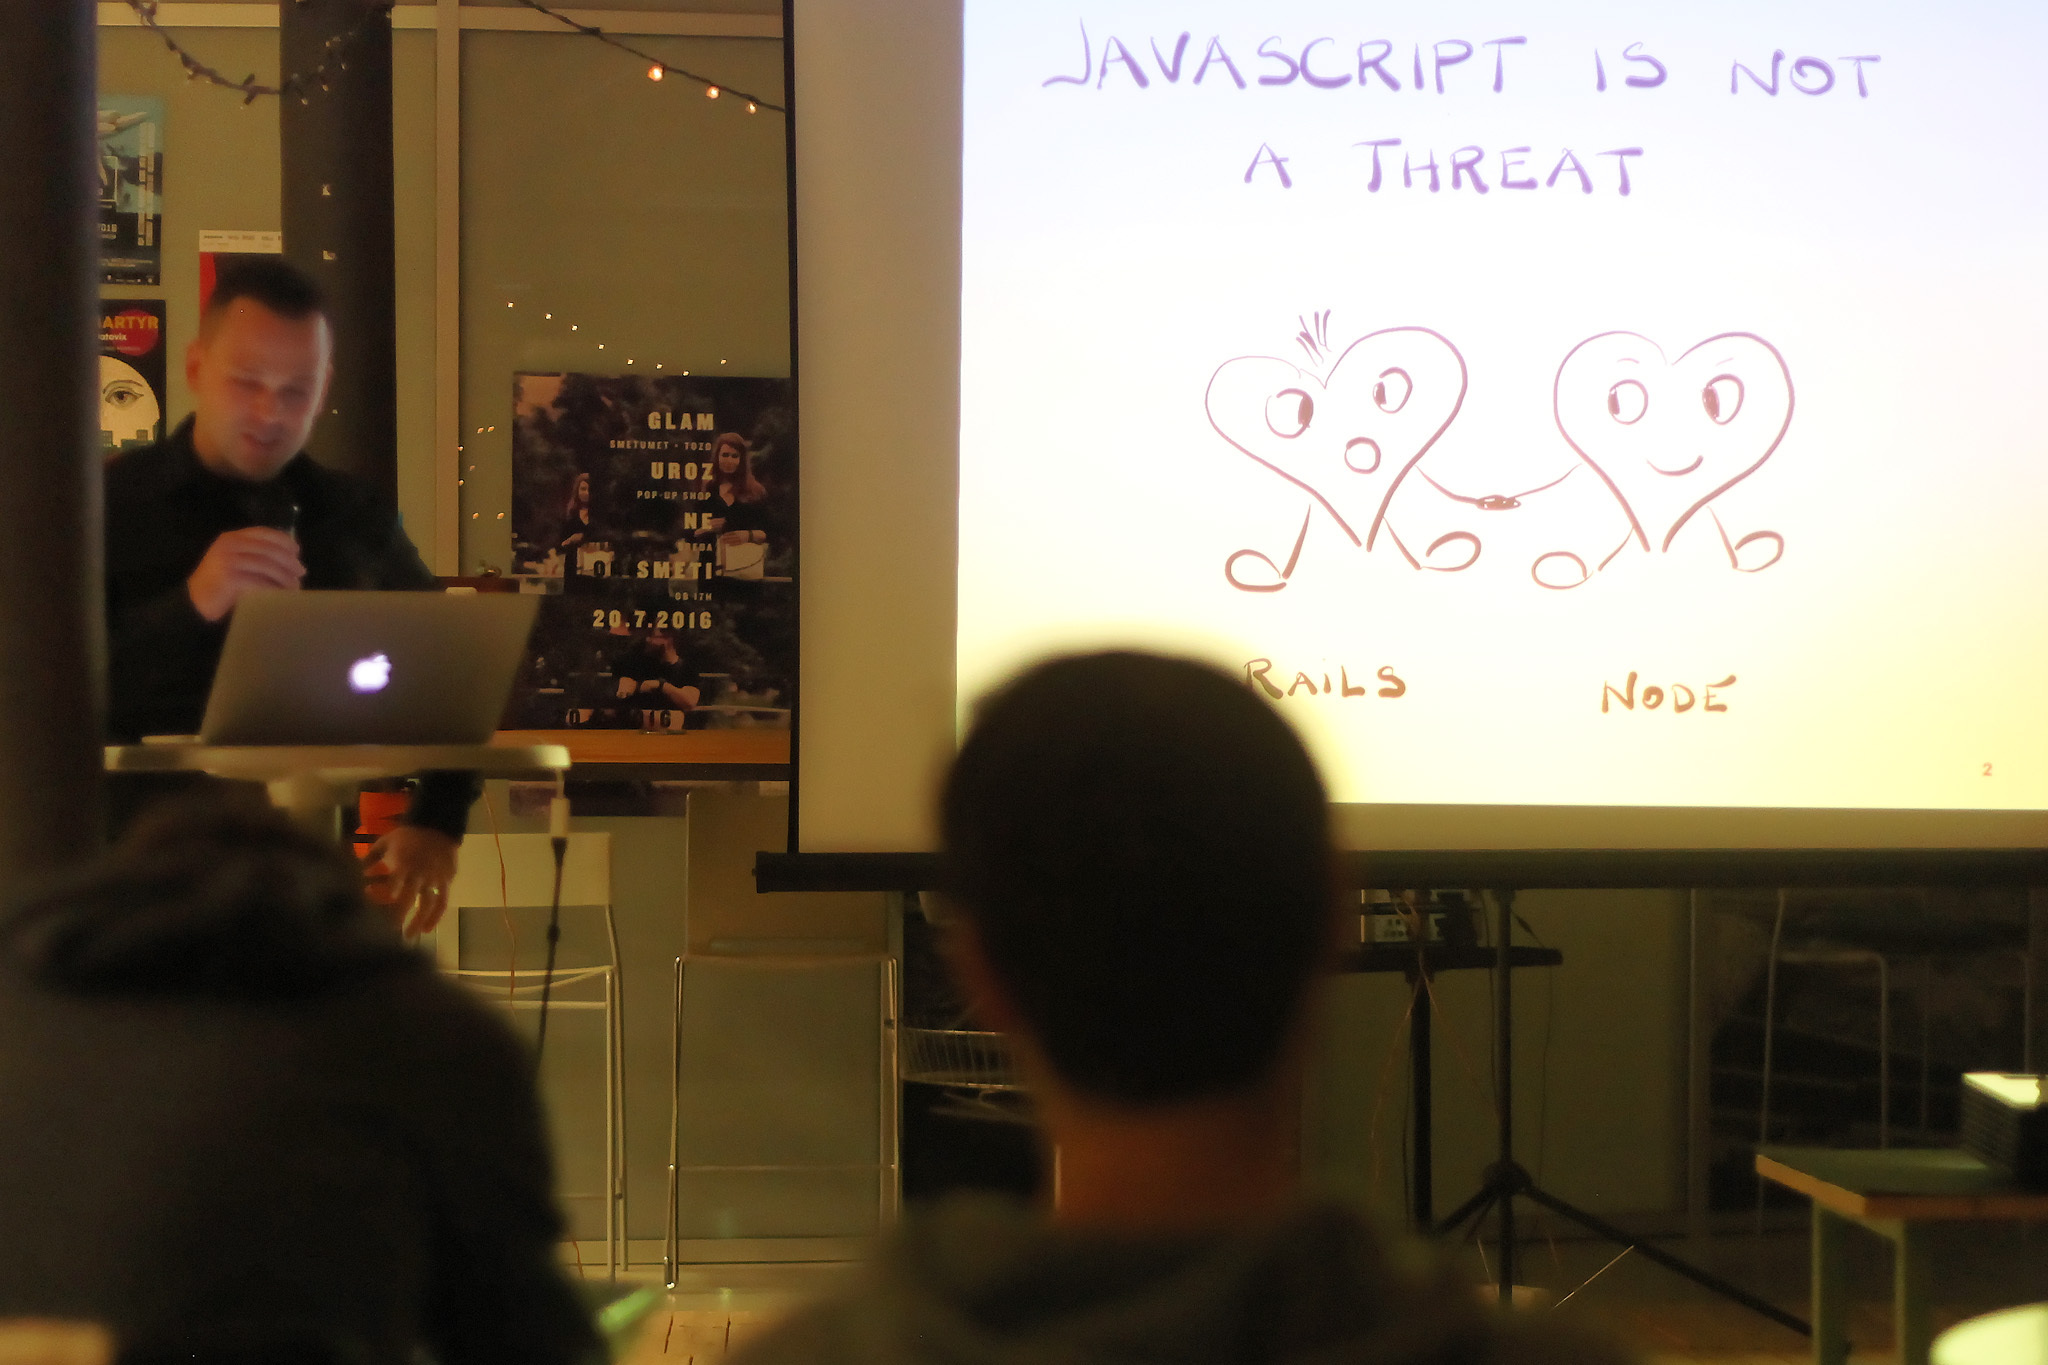 JAVASCRIPT IS NOT
A THREAT
RAILS
NODE
2
GLAM
SMETUMET • TOZD
UROZ
POP-UP SHOP
NE
SMETI
OB 17H
20.7.2016
ARTYR